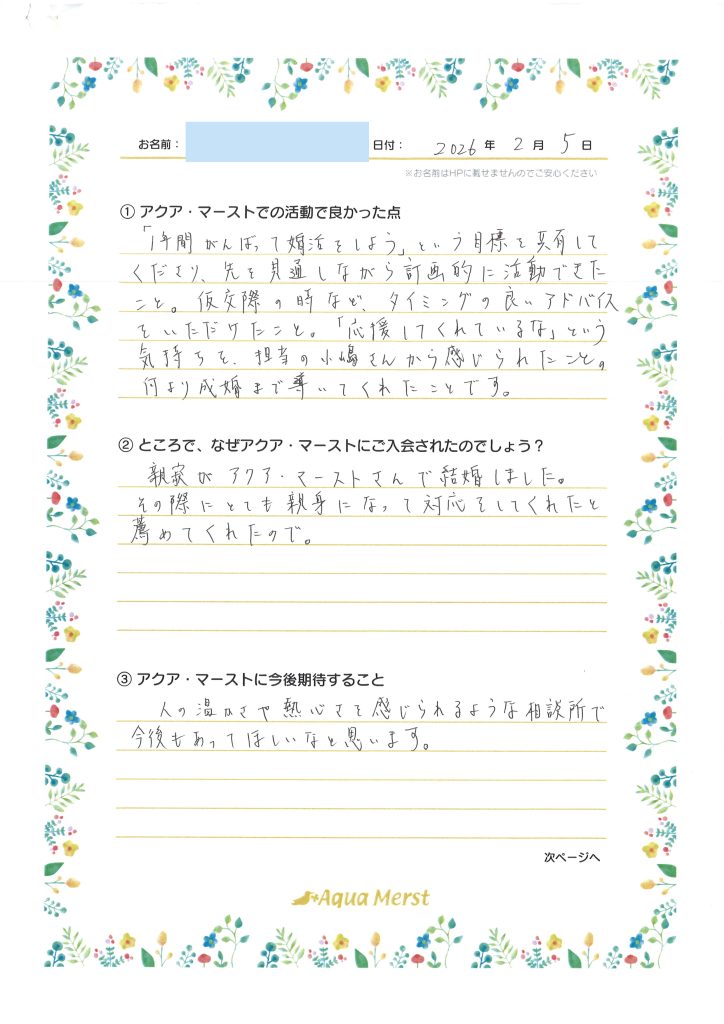 お名前：
日付： 2026 年 2 月 5 日
※お名前はHPに載せませんのでご安心ください
① アクア・マーストでの活動で良かった点
「1年間がんばって婚活をしよう」という目標を共有して
くださり、先を見通しながら計画的に活動できた
こと。仮交際の時など、タイミングの良いアドバイス
をいただけたこと。「応援してくれているな」という
気持ちを、担当の小嶋さんから感じられたこと。
何より成婚まで導いてくれたことです。
② ところで、なぜアクア・マーストにご入会されたのでしょう？
親家がアクア・マーストさんで結婚しました。
その際にとても親身になって対応をしてくれたと
薦めてくれたので。
③ アクア・マーストに今後期待すること
人の温かさや熱心さを感じられるような相談所で
今後もあってほしいなと思います。
次ページへ
Aqua Merst